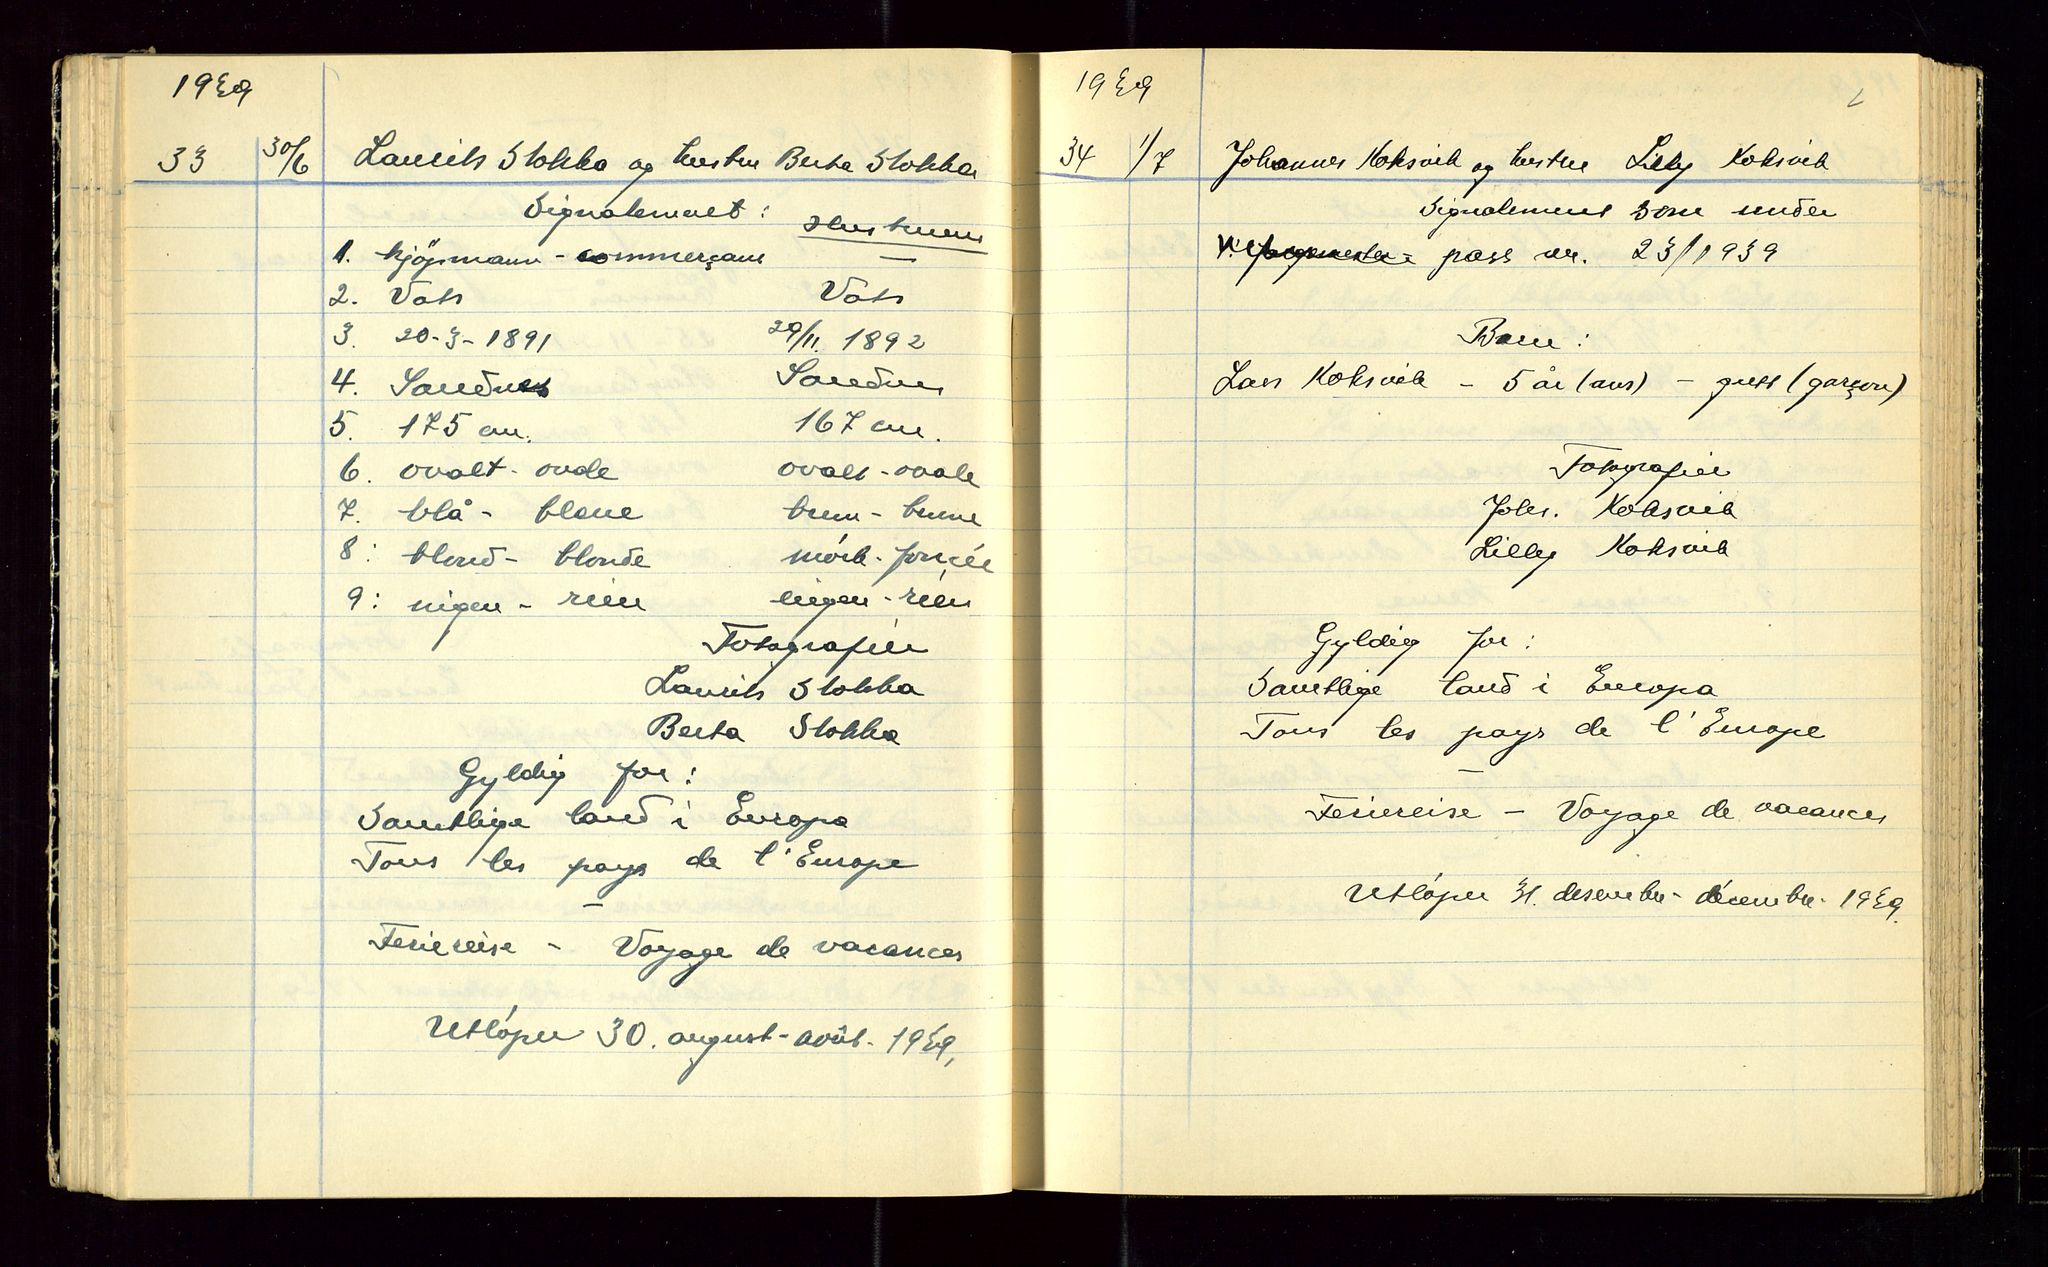 1939
33 30/6 Laurits Stokka og hustru Berta Stokka
Signalement: Hustruens
1. Kjöpmann - commerçant —
2. Vats Vats
3. 20-3-1891 29/11. 1892
4. Sandnes Sandnes
5. 175 cm. 167 cm.
6. ovalt - ovale ovalt - ovale
7. blå - bleue brun - brune
8: blond - blonde mörk - foncée
9: ingen - rien ingen - rien
Fotografier
Laurits Stokka
Berta Stokka
Gyldig for:
Samtlige land i Europa
Tous les pays de l'Europe
—
Feriereise - Voyage de vacances
Utlöper 30. august - août - 1939.
1939
34 1/7 Johannes Koksvik og hustru Lilly Koksvik
Signalement som under
pass nr. 23/1939
Barn:
Lars Koksvik - 5 år (ans) - gutt (garçon)
Fotografier
Johs. Koksvik
Lilly Koksvik
Gyldig for:
Samtlige land i Europa
Tous les pays de l'Europe
—
Feriereise - Voyage de vacances
Utlöper 31. desember - décembre - 1939.